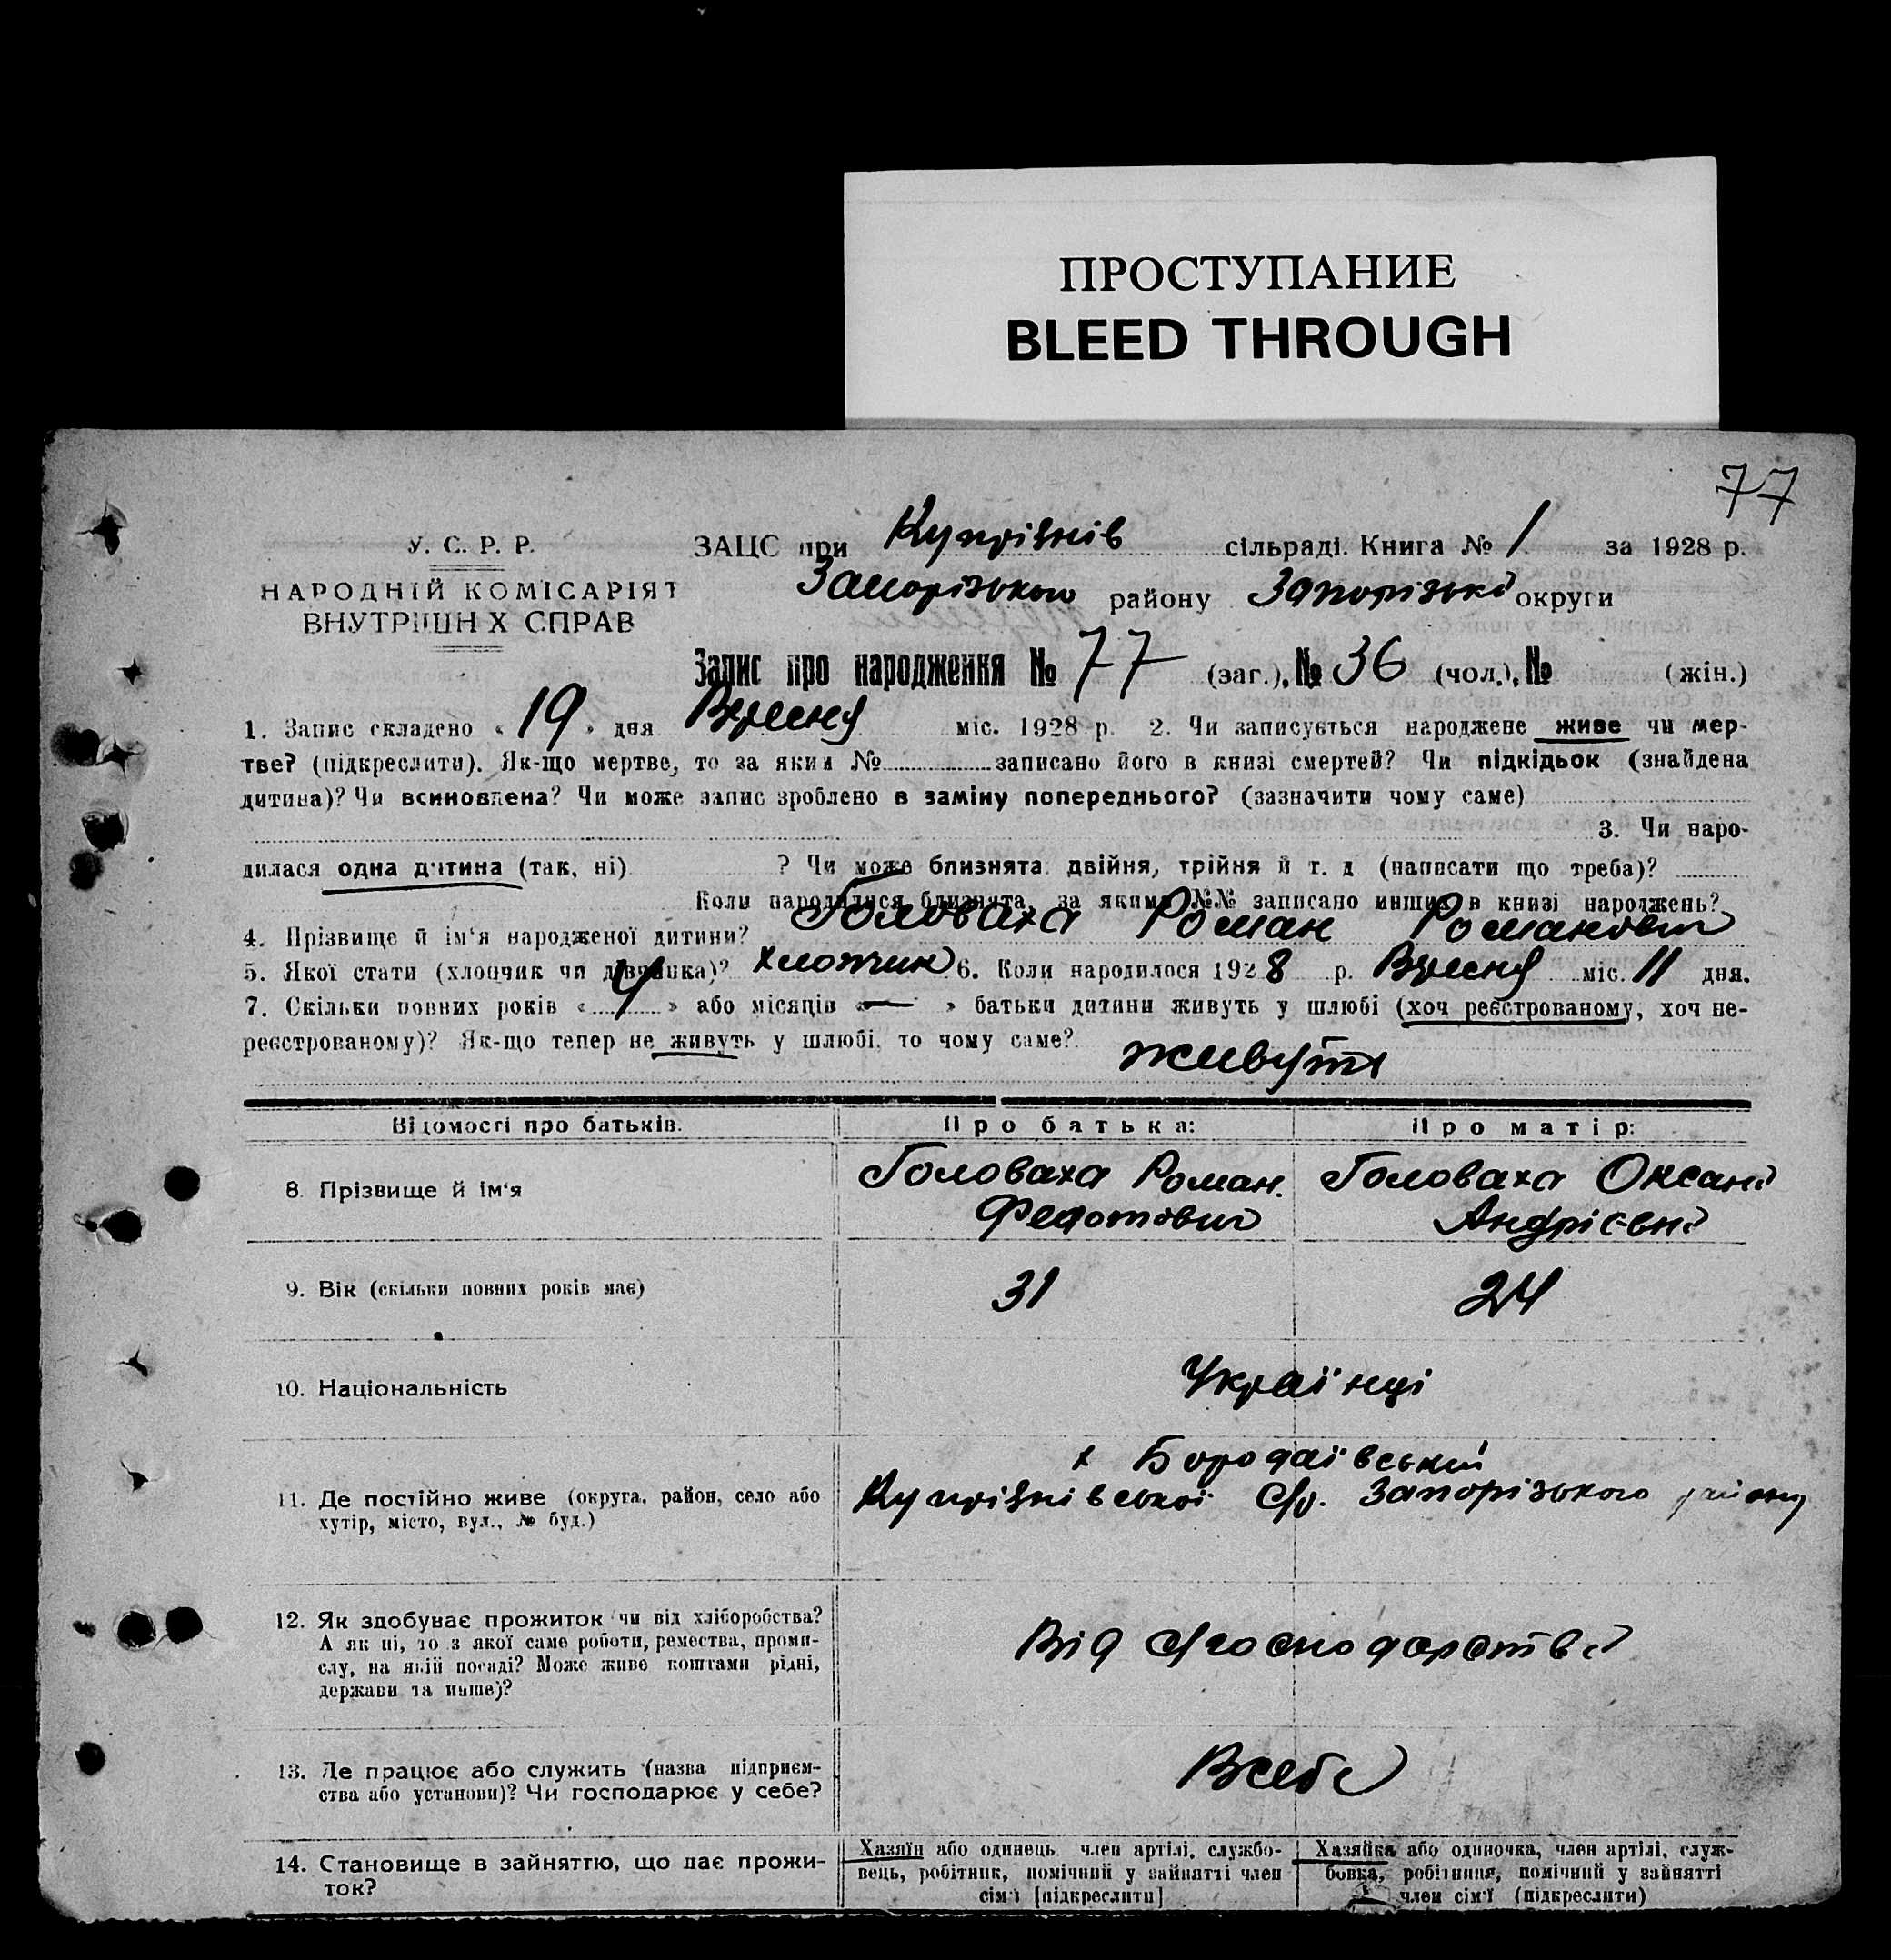 ПРОСТУПАНИЕ
BLEED THROUGH
77
У. С. Р. Р.
НАРОДНІЙ КОМІСАРІЯТ
ВНУТРІШН Х СПРАВ
ЗАЦС при Купріянів сільраді. Книга № 1 за 1928 р.
Запорізького району Запорізької округи
Запис про народження № 77 (заг.), № 36 (чол.), № (жін.)
1. Запис складено « 19 » дня Вересня міс. 1928 р. 2. Чи записується народжене живе чи мер-
тве? (підкреслити). Як-що мертве, то за яким № записано його в книзі смертей? Чи підкідьок (знайдена
дитина)? Чи всиновлена? Чи може запис зроблено в заміну попереднього? (зазначити чому саме)
3. Чи наро-
дилася одна дитина (так, ні) ? Чи може близнята двійня, трійня й т. д (написати що треба)?
Коли народилися близнята, за якими №№ записано инших в книзі народжень?
4. Прізвище й ім'я народженої дитини? Головаха Роман Романович
5. Якої стати (хлопчик чи дівчинка)? Хлопчик 6. Коли народилося 1928 р. Вересня міс. 11 дня.
7. Скільки повних років « 4 » або місяців « — » батьки дитини живуть у шлюбі (хоч реєстрованому, хоч не-
реєстрованому)? Як-що тепер не живуть у шлюбі, то чому саме? живуть
Відомості про батьків. Про батька: Про матір:
8. Прізвище й ім'я Головаха Роман. Головаха Оксана
Федотович Андрієвна
9. Вік (скільки повних років має) 31 24
10. Національність Українці
х Бородаївський
11. Де постійно живе (округа, район, село або Купріянівської С/р. Запорізького району
хутір, місто, вул., № буд.)
12. Як здобуває прожиток чи від хліборобства?
А як ні, то з якої саме роботи, ремества, проми-
слу, на якій посаді? Може живе коштами рідні,
держави та инше)?
Від С/господарства
13. Де працює або служить (назва підприєм-
ства або установи)? Чи господарює у себе?
В себе
14. Становище в зайняттю, що дає прожи-
ток?
Хазяїн або одинець, член артілі, службо-
вець, робітник, помічний у зайнятті член
сім'ї [підкреслити]
Хазяйка або одиночка, член артілі, служ-
бовка, робітниця, помічний у зайнятті
член сім'ї (підкреслити)